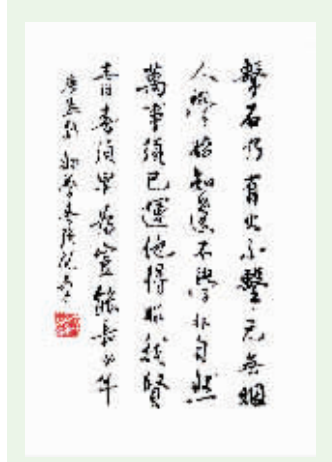 擊石乃有火不擊元無烟
人學始知道不學非自然
萬事須己運他得非我賢
青春須早為豈能長少年
唐孟郊